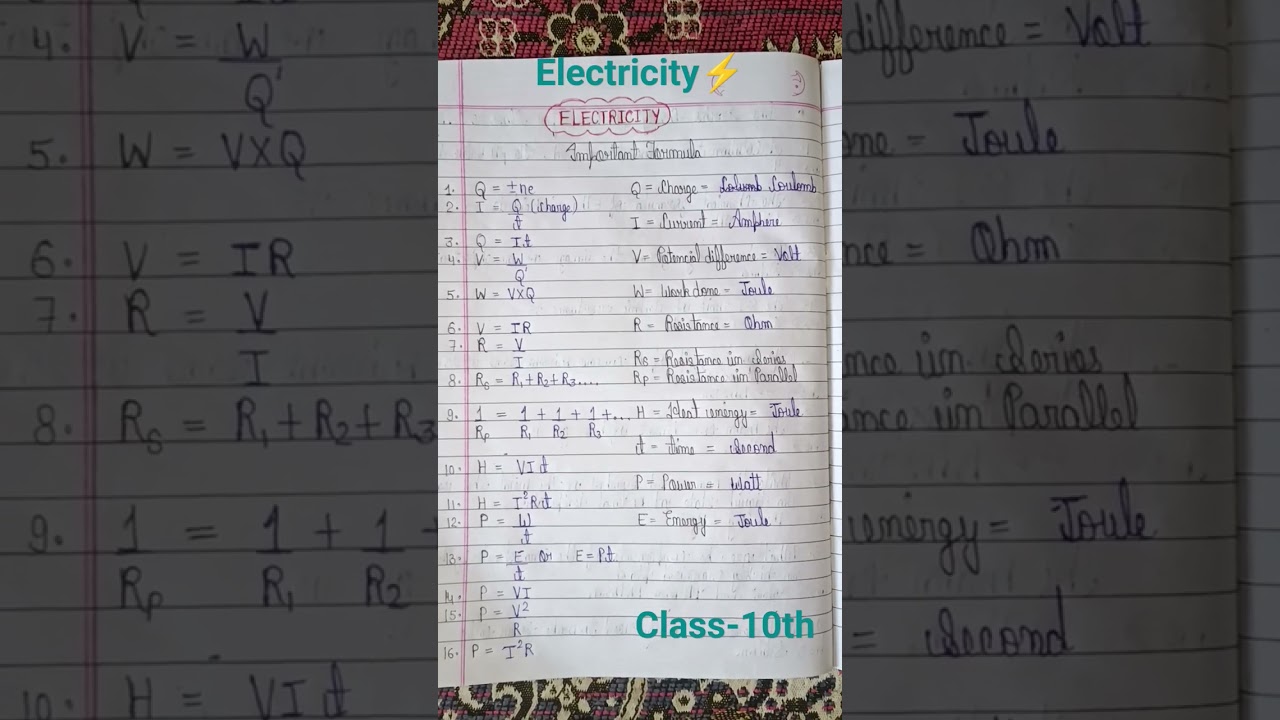 Electricity⚡
ELECTRICITY
Important Formula
1. Q = ±ne
2. I = Q (charge)
t
3. Q = It
4. V = W
Q
5. W = VXQ
6. V = IR
7. R = V
I
8. Rs = R1+R2+R3....
9. 1 = 1 + 1 + 1 +...
Rp R1 R2 R3
10. H = VIt
11. H = I²Rt
12. P = W
t
13. P = E Or E=Pt
t
14. P = VI
15. P = V²
R
16. P = I²R
Q = Charge = Coulomb
I = Current = Amphere
V= Potencial difference = Volt
W= Work done = Joule
R = Resistance = Ohm
Rs = Resistance in Series
Rp = Resistance in Parallel
H = Heat energy = Joule
t = time = second
P = Power = Watt
E = Energy = Joule
Class-10th
4. V = W
Q
5. W = VXQ
6. V = IR
7. R = V
I
8. Rs = R1+R2+R3
9. 1 = 1 + 1
Rp R1 R2
10. H = VIt
difference = Volt
= Joule
= Ohm
in Series
in Parallel
energy = Joule
= second